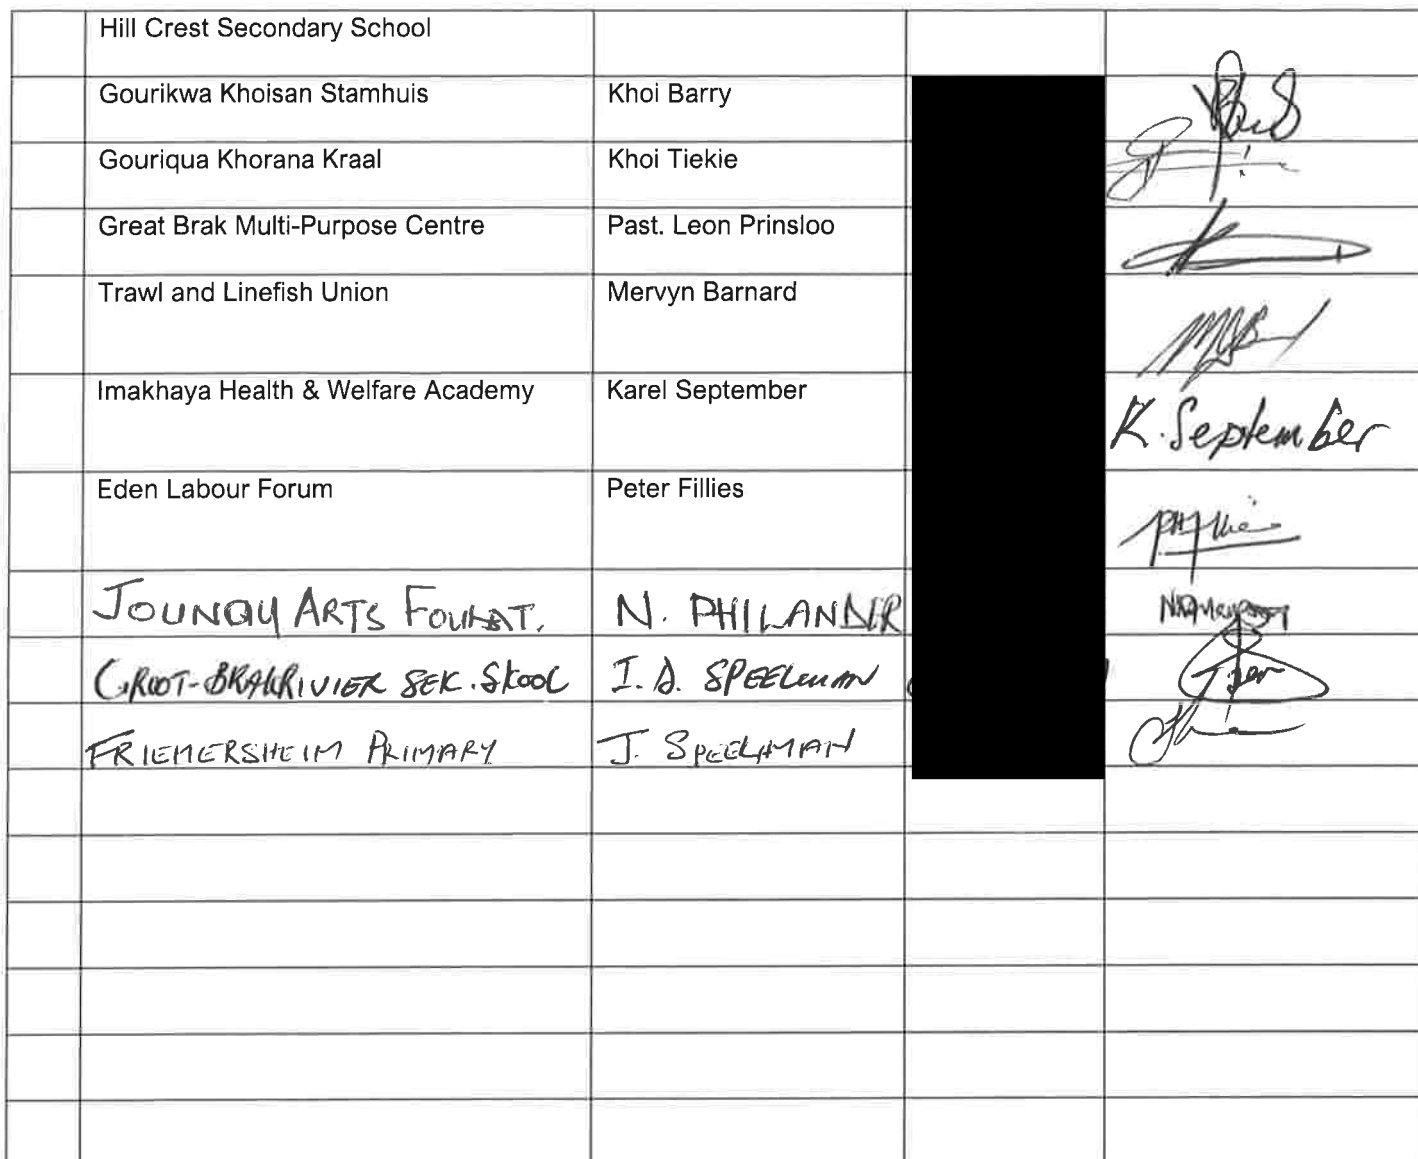 Hill Crest Secondary School
Gourikwa Khoisan Stamhuis Khoi Barry
Gouriqua Khorana Kraal Khoi Tiekie
Great Brak Multi-Purpose Centre Past. Leon Prinsloo
Trawl and Linefish Union Mervyn Barnard
Imakhaya Health & Welfare Academy Karel September K. September
Eden Labour Forum Peter Fillies
ARTS N. PHILANDER
GROOT-BRAKRIVIER SEK. SKOOL I. D. SPEELMAN
FRIEMERSHEIM PRIMARY J. SPEELMAN